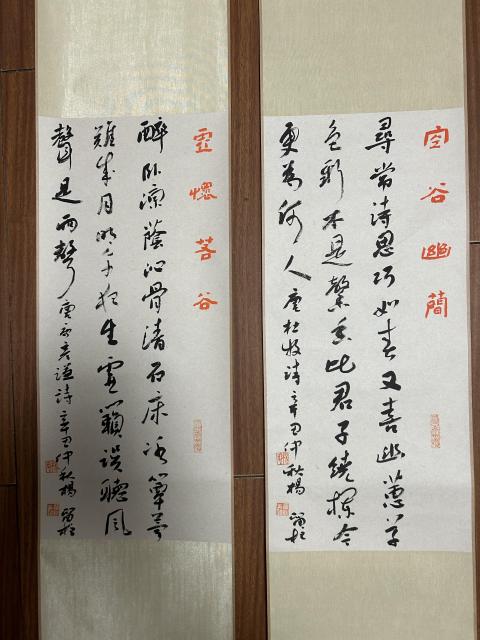 空谷幽蘭
尋常詩思巧如春又喜幽蕙草
色新本是馨香比君子繞欄今
更為何人 唐杜牧詩 辛丑仲秋楊
虛懷若谷
醉臥涼蔭沁骨清石床冰簟夢
難成月明午夜生虛籟誤聽風
聲是雨聲 唐彥謙詩 辛丑仲秋楊